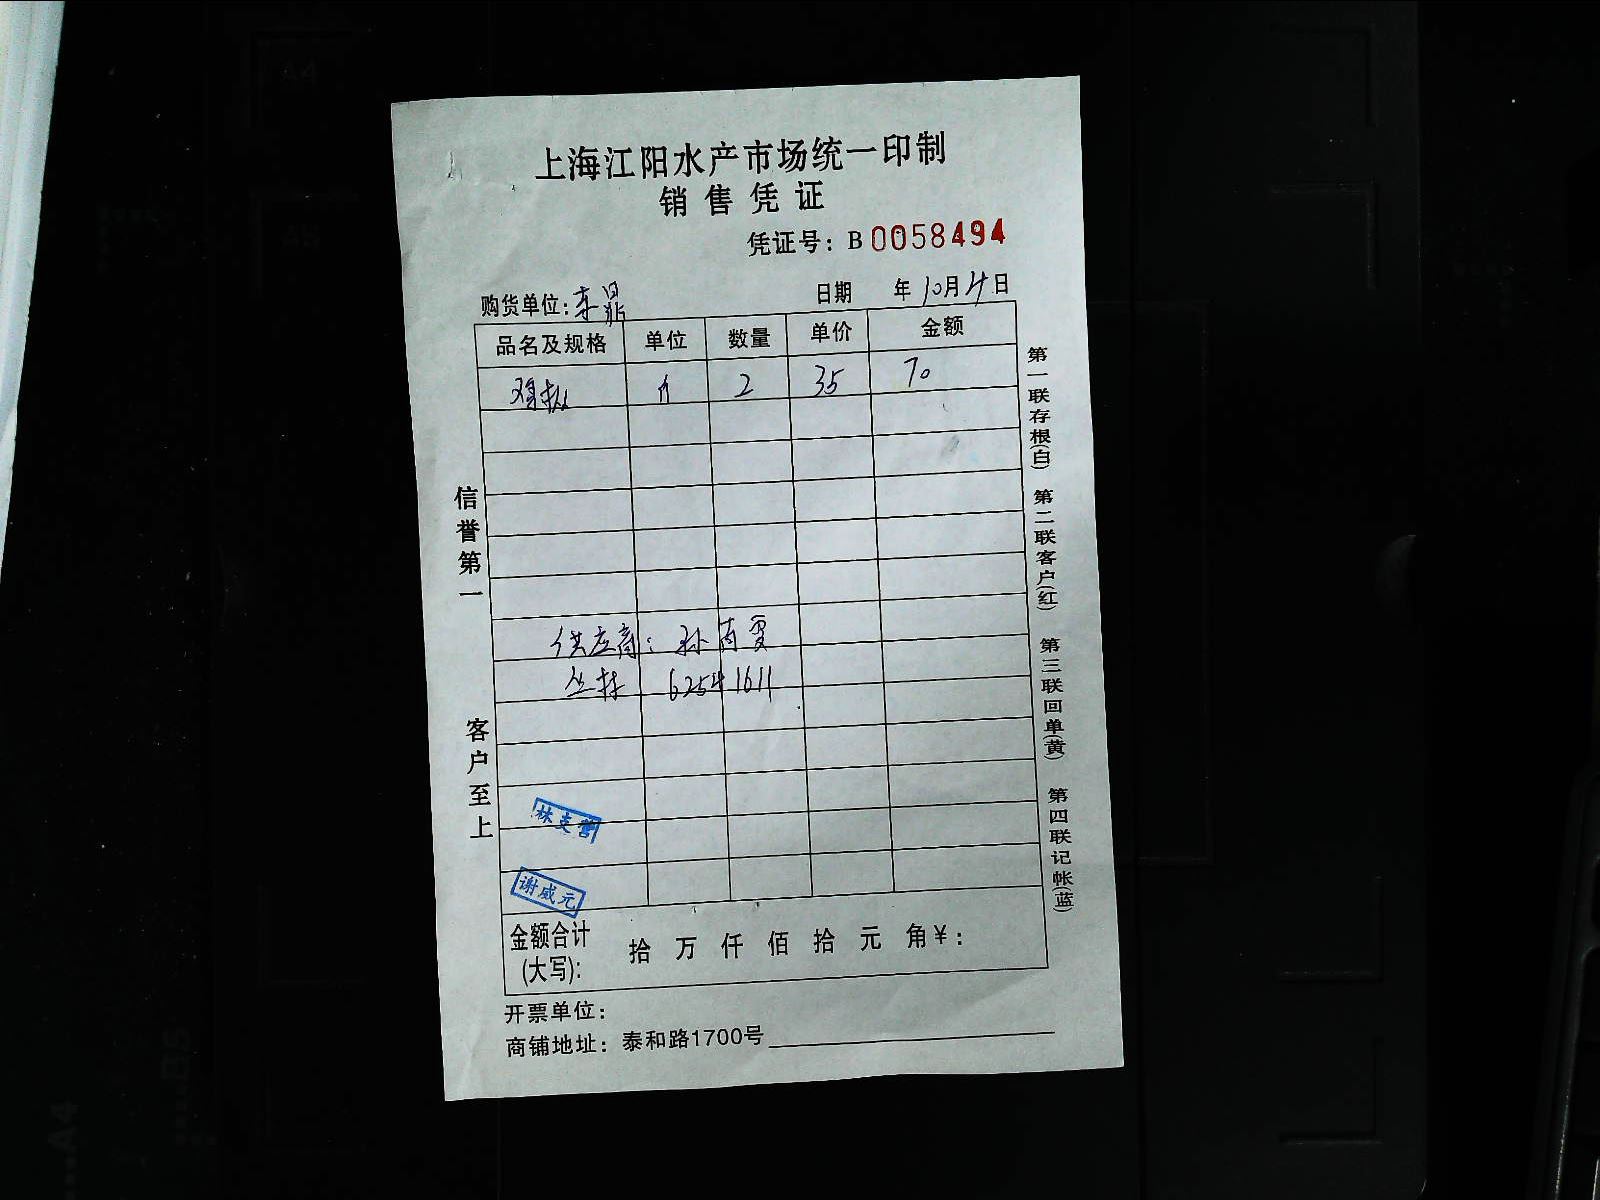 上海江阳水产市场统一印制
销售凭证
凭证号：B 0058494
购货单位：东鼎 日期 年10月4日
品名及规格 单位 数量 单价 金额
鸡枞 个 2 35 70
供应商：孙
丛林 62541611
林支营
谢威元
金额合计(大写)： 拾 万 仟 佰 拾 元 角 ¥：
开票单位：
商铺地址：泰和路1700号
信誉第一
客户至上
第一联存根(白) 第二联客户(红) 第三联回单(黄) 第四联记帐(蓝)